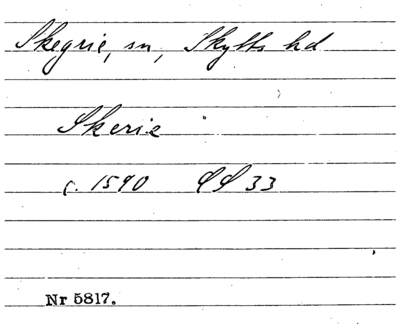 Skegrie, sn, Skytts hd
Skerie
c. 1590 SS 33
Nr 5817.